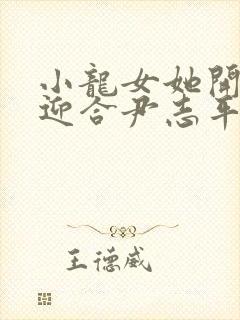 小龍女她開
迎合尹志平
王德威